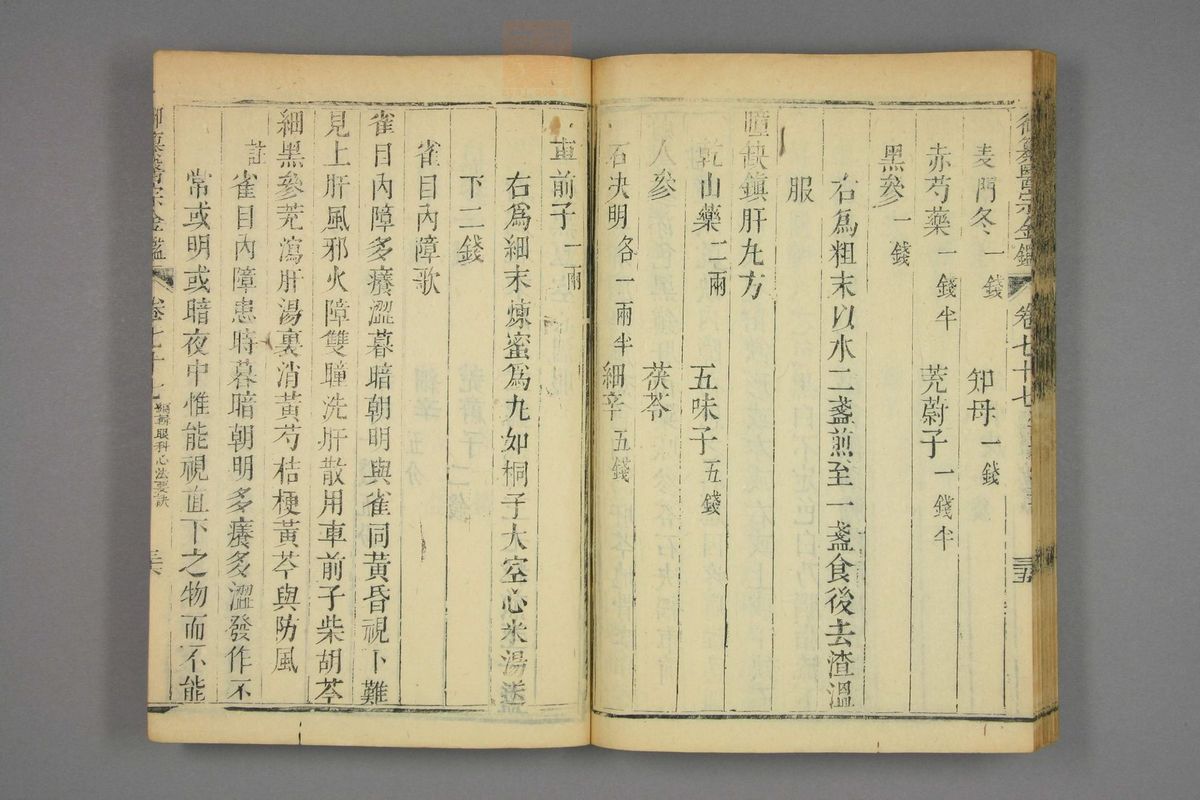 御纂醫宗金鑑 卷七十七 三五
麦門冬一錢 知母一錢
赤芍藥一錢半 茺蔚子一錢半
黑參一錢
右為粗末以水二盞煎至一盞食後去渣溫
服
瞳缺鎮肝丸方
乾山藥二兩 五味子五錢
人參 茯苓
石决明各一兩半 細辛五錢
車前子一兩
右為細末煉蜜為丸如桐子大空心米湯送
下二錢
雀目內障歌
雀目內障多癢澀暮暗朝明與雀同黃昏視下難
見上肝風邪火障雙瞳洗肝散用車前子柴胡芩
細黑參茺瀉肝湯裏消黃芍桔梗黃芩與防風
註
雀目內障患時暮暗朝明多癢多澀發作不
常或明或暗夜中惟能視直下之物而不能
御纂醫宗金鑑 卷七十七 編輯眼科心法要訣 三六